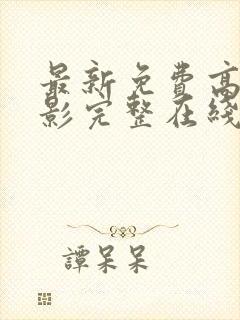 最新免费高
影完整在线
譚呆呆